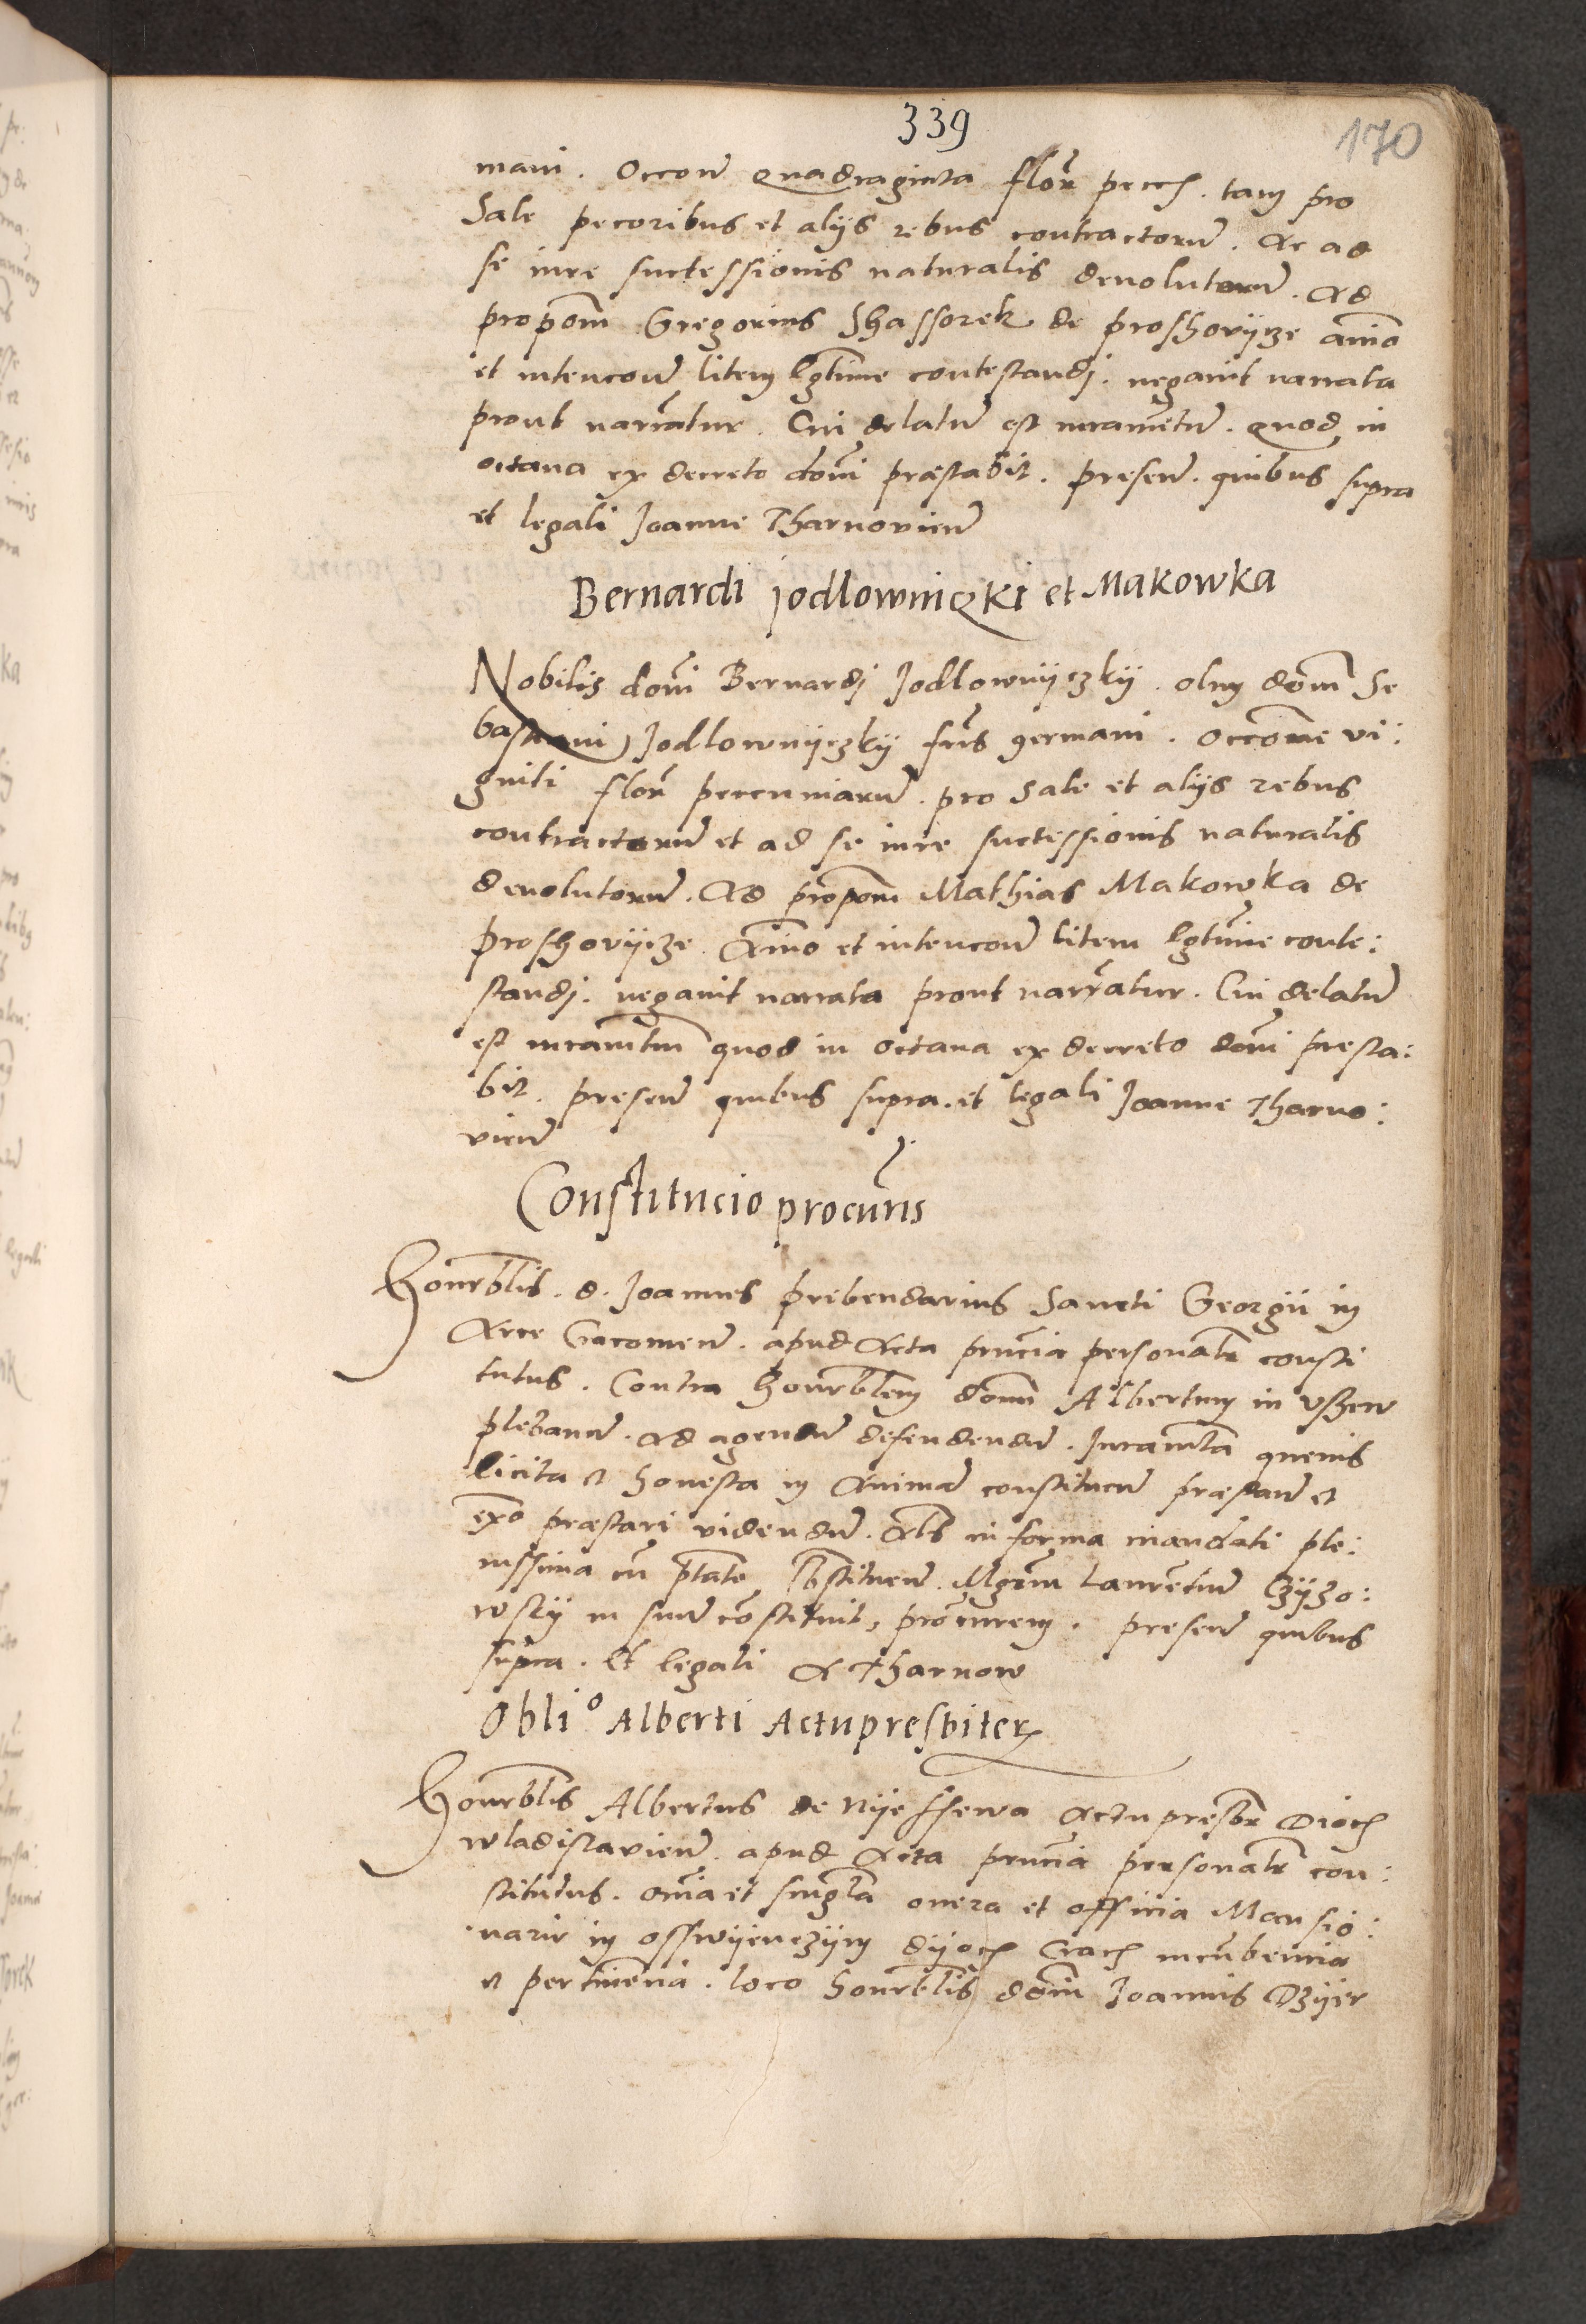 339
170
mani. Occone Quadraginta florē pecch. tam pro
Sale pecoribus et alijs rebus contractorū. Ac ad
se iure suctessionis naturalis deuolutorū. Ad
proponē Gregorius Shassorek de proshovijcze aīmo
et intencone litem lgtīme contestandj. negauit narrata
prout narrātur. Cui delatū est iuramētū. Quod in
octaua ex decreto domī præstabit. presen. quibus supra
et legali Joanne Tharnovien
Bernardi jodlowniczki et Makowka
Nobilis domī Bernardj Jodlownijczkij. olim domī Se
bastiani Jodlownijczkij frīs germani. Occone vi:
ginti florē peccuniarū. pro Sale et alijs rebus
contractorū et ad se iure suctessionis naturalis
deuolutorū. Ad proponē Mathias Makowka de
proshovijcze. Aīmo et intencone litem lgtīme conte:
standj. negauit narrata prout narrātur. Cui delatū
est iuramētum quod in octaua ex decreto domī presta:
bit. presen quibus supra. et legali Joanne Tharno:
vien
Constitucio procuris
Honrblis. d. Joannes prebendarius Sancti Georgii in
Arce Cracovien. apud Acta pnncia personalr consti
tutus. Contra Honrblem domī Albertum in Vszew
plebanū. ad agendū defendendū. Iuramēta queuis
licita et honesta in Animā constituen præstand et
exo præstari videndū. Als in forma mandati ple:
nissima cū ptate substituen. Mgrum Laurētiū Czijzo:
wskij in suū constituit, procurem. presen quibus
supra. Et legali A Tharnow
Obli° Alberti Actupresbiter
Honrblis Albertus de Nijessewa Actu presbr Dioch
wladislavien. apud Acta pnncia personalr con:
stitutus. omīa et singla onera et officia Mansio:
narie in osswijenczijm dijoch Crach incūbencia
et pertinēcia. loco honrblis domī Joannis Dzijer